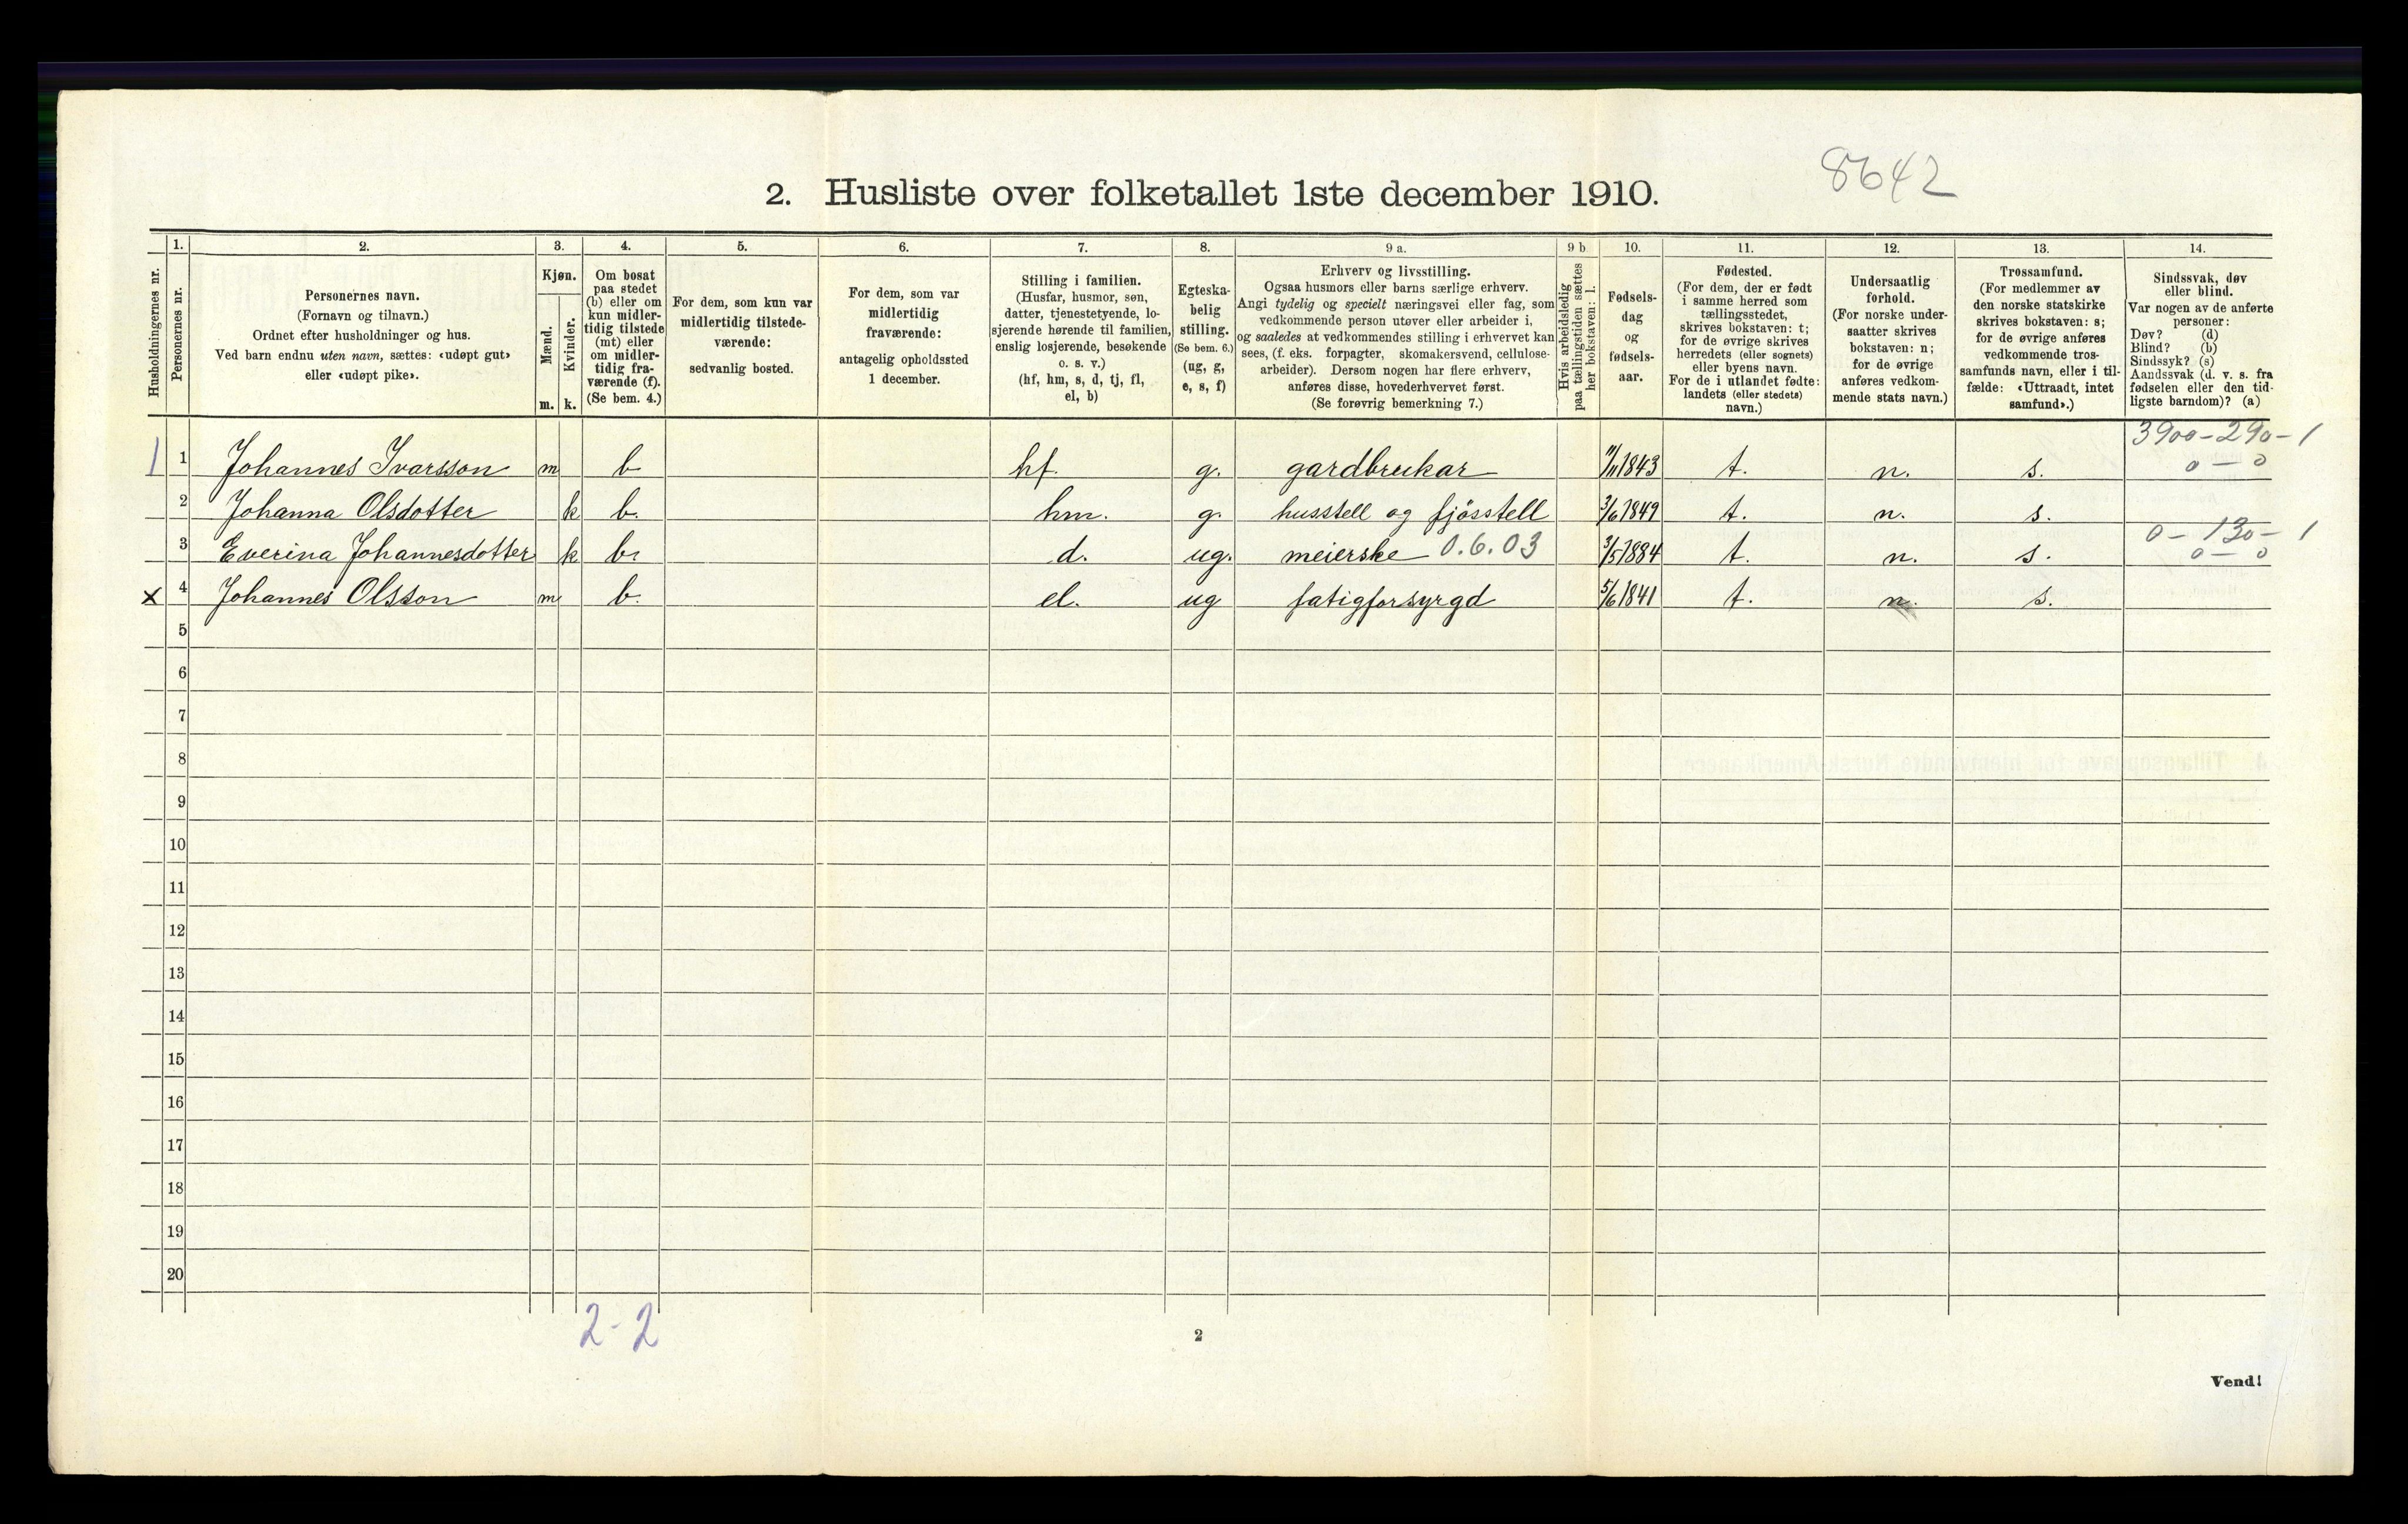 8642
2. Husliste over folketallet 1ste december 1910.
Husholdningernes nr.
1.
Personernes nr.
2.
Personernes navn.
(Fornavn og tilnavn.)
Ordnet efter husholdninger og hus.
Ved barn endnu uten navn, sættes: «udøpt gut»
eller «udøpt pike».
3.
Kjøn.
Mænd.
Kvinder.
m. k.
4.
Om bosat
paa stedet
(b) eller om
kun midler-
tidig tilstede
(mt) eller
om midler-
tidig fra-
værende (f).
(Se bem. 4.)
5.
For dem, som kun var
midlertidig tilstede-
værende:
sedvanlig bosted.
6.
For dem, som var
midlertidig
fraværende:
antagelig opholdssted
1 december.
7.
Stilling i familien.
(Husfar, husmor, søn,
datter, tjenestetyende, lo-
sjerende hørende til familien,
enslig losjerende, besøkende
o. s. v.)
(hf, hm, s, d, tj, fl,
el, b)
8.
Egteska-
belig
stilling.
(Se bem. 6.)
(ug, g,
e, s, f)
9 a.
Erhverv og livsstilling.
Ogsaa husmors eller barns særlige erhverv.
Angi tydelig og specielt næringsvei eller fag, som
vedkommende person utøver eller arbeider i,
og saaledes at vedkommendes stilling i erhvervet kan
sees, (f. eks. forpagter, skomakersvend, cellulose-
arbeider). Dersom nogen har flere erhverv,
anføres disse, hovederhvervet først.
(Se forøvrig bemerkning 7.)
9 b
Hvis arbeidsledig
paa tællingstiden sættes
her bokstaven: l.
10.
Fødsels-
dag
og
fødsels-
aar.
11.
Fødested.
(For dem, der er født
i samme herred som
tællingsstedet,
skrives bokstaven: t;
for de øvrige skrives
herredets (eller sognets)
eller byens navn.
For de i utlandet fødte:
landets (eller stedets)
navn.)
12.
Undersaatlig
forhold.
(For norske under-
saatter skrives
bokstaven: n;
for de øvrige
anføres vedkom-
mende stats navn.)
13.
Trossamfund.
(For medlemmer av
den norske statskirke
skrives bokstaven: s;
for de øvrige anføres
vedkommende tros-
samfunds navn, eller i til-
fælde: «Uttraadt, intet
samfund».)
14.
Sindssvak, døv
eller blind.
Var nogen av de anførte
personer:
Døv? (d)
Blind? (b)
Sindssyk? (s)
Aandssvak (d. v. s. fra
fødselen eller den tid-
ligste barndom)? (a)
3900-290-1
1 1 Johannes Ivarsson m b hf. g. gardbrukar 11/11 1843 t. n. s. 0-0
2 Johanna Olsdotter k b. hm. g. husstell og fjösstell 3/6 1849 t. n. s.
0-130-1
3 Everina Johannesdotter k b. d. ug. meierske 0.6.03 3/5 1884 t. n. s. 0-0
x 4 Johannes Olsson m b. el. ug fatigforsyrgd 5/6 1841 t. n. s.
5
6
7
8
9
10
11
12
13
14
15
16
17
18
19
20
2-2
2
Vend!